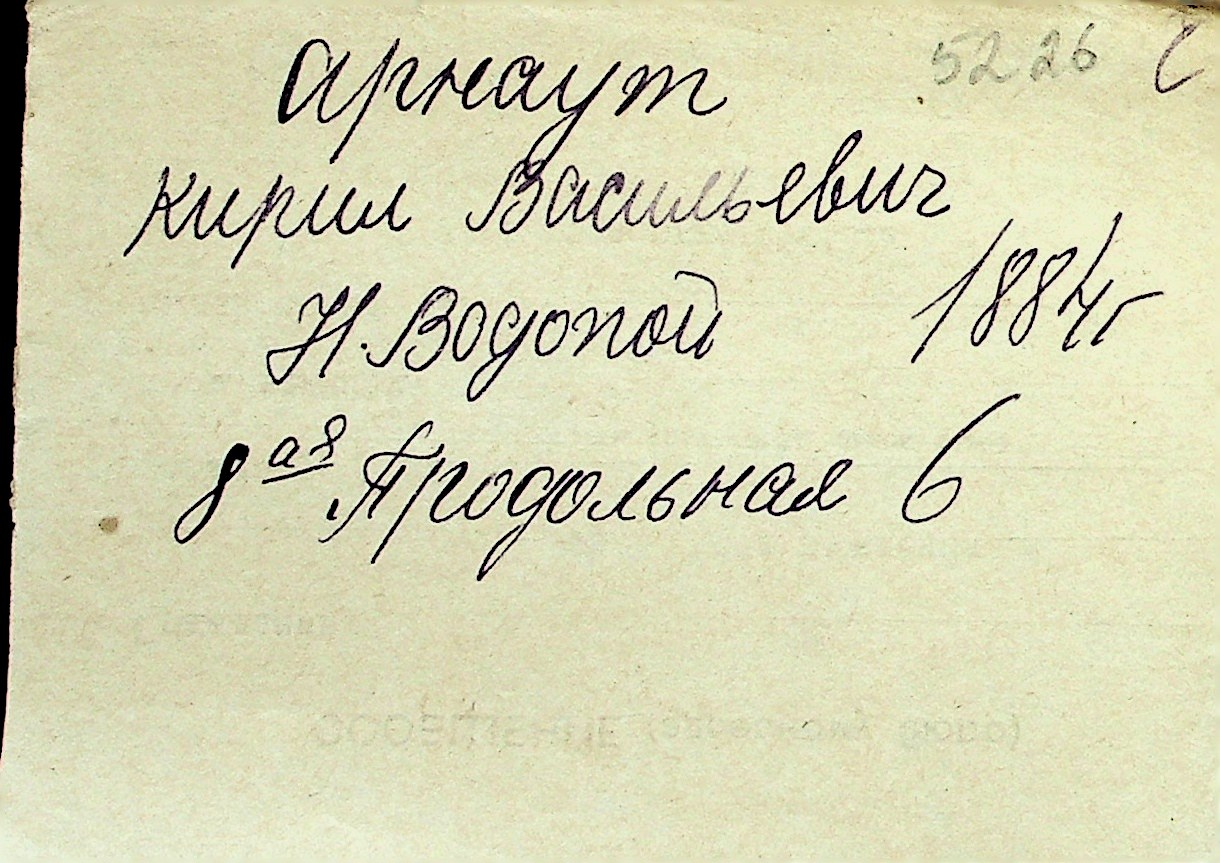 5226
Арнаут
Кирил Васильевич
Н. Водопой 1884г
8ая Продольная 6